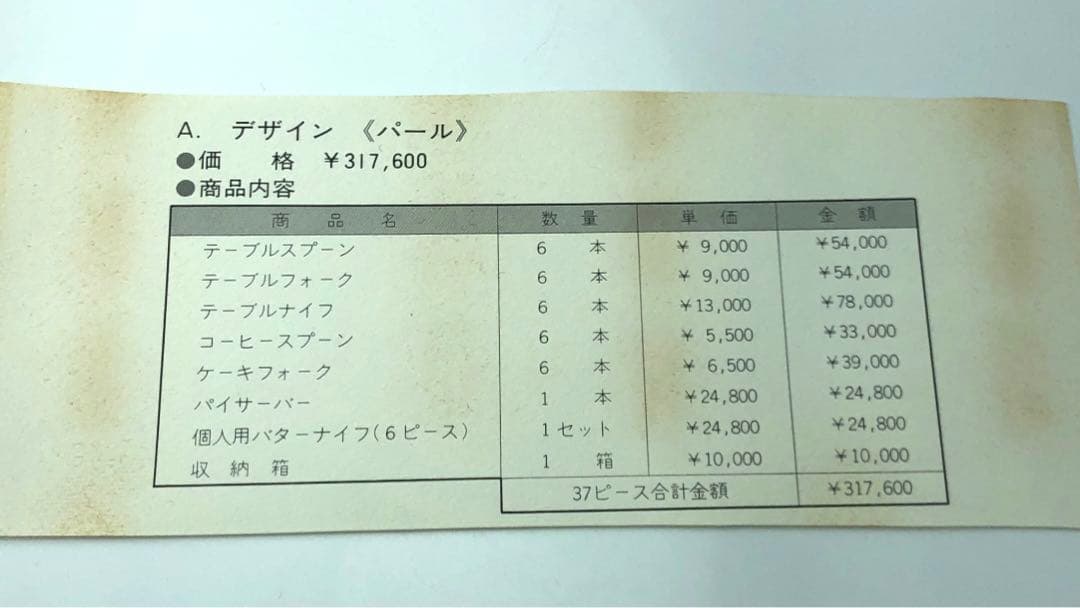 A. デザイン 《パール》
●価 格 ¥317,600
●商品内容
商 品 名 数 量 単 価 金 額
テーブルスプーン 6 本 ¥ 9,000 ¥54,000
テーブルフォーク 6 本 ¥ 9,000 ¥54,000
テーブルナイフ 6 本 ¥13,000 ¥78,000
コーヒースプーン 6 本 ¥ 5,500 ¥33,000
ケーキフォーク 6 本 ¥ 6,500 ¥39,000
パイサーバー 1 本 ¥24,800 ¥24,800
個人用バターナイフ(6ピース) 1セット ¥24,800 ¥24,800
収 納 箱 1 箱 ¥10,000 ¥10,000
37ピース合計金額 ¥317,600